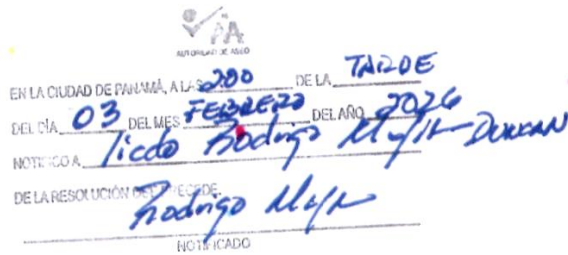 AA
AUTORIDAD DE ASEO
EN LA CIUDAD DE PANAMÁ, A LAS 2:00 DE LA TARDE
DEL DÍA 03 DEL MES FEBRERO DEL AÑO 2026
NOTIFICO A licdo Rodrigo DUNCAN
DE LA RESOLUCIÓN QUE PRECEDE.
Rodrigo
NOTIFICADO